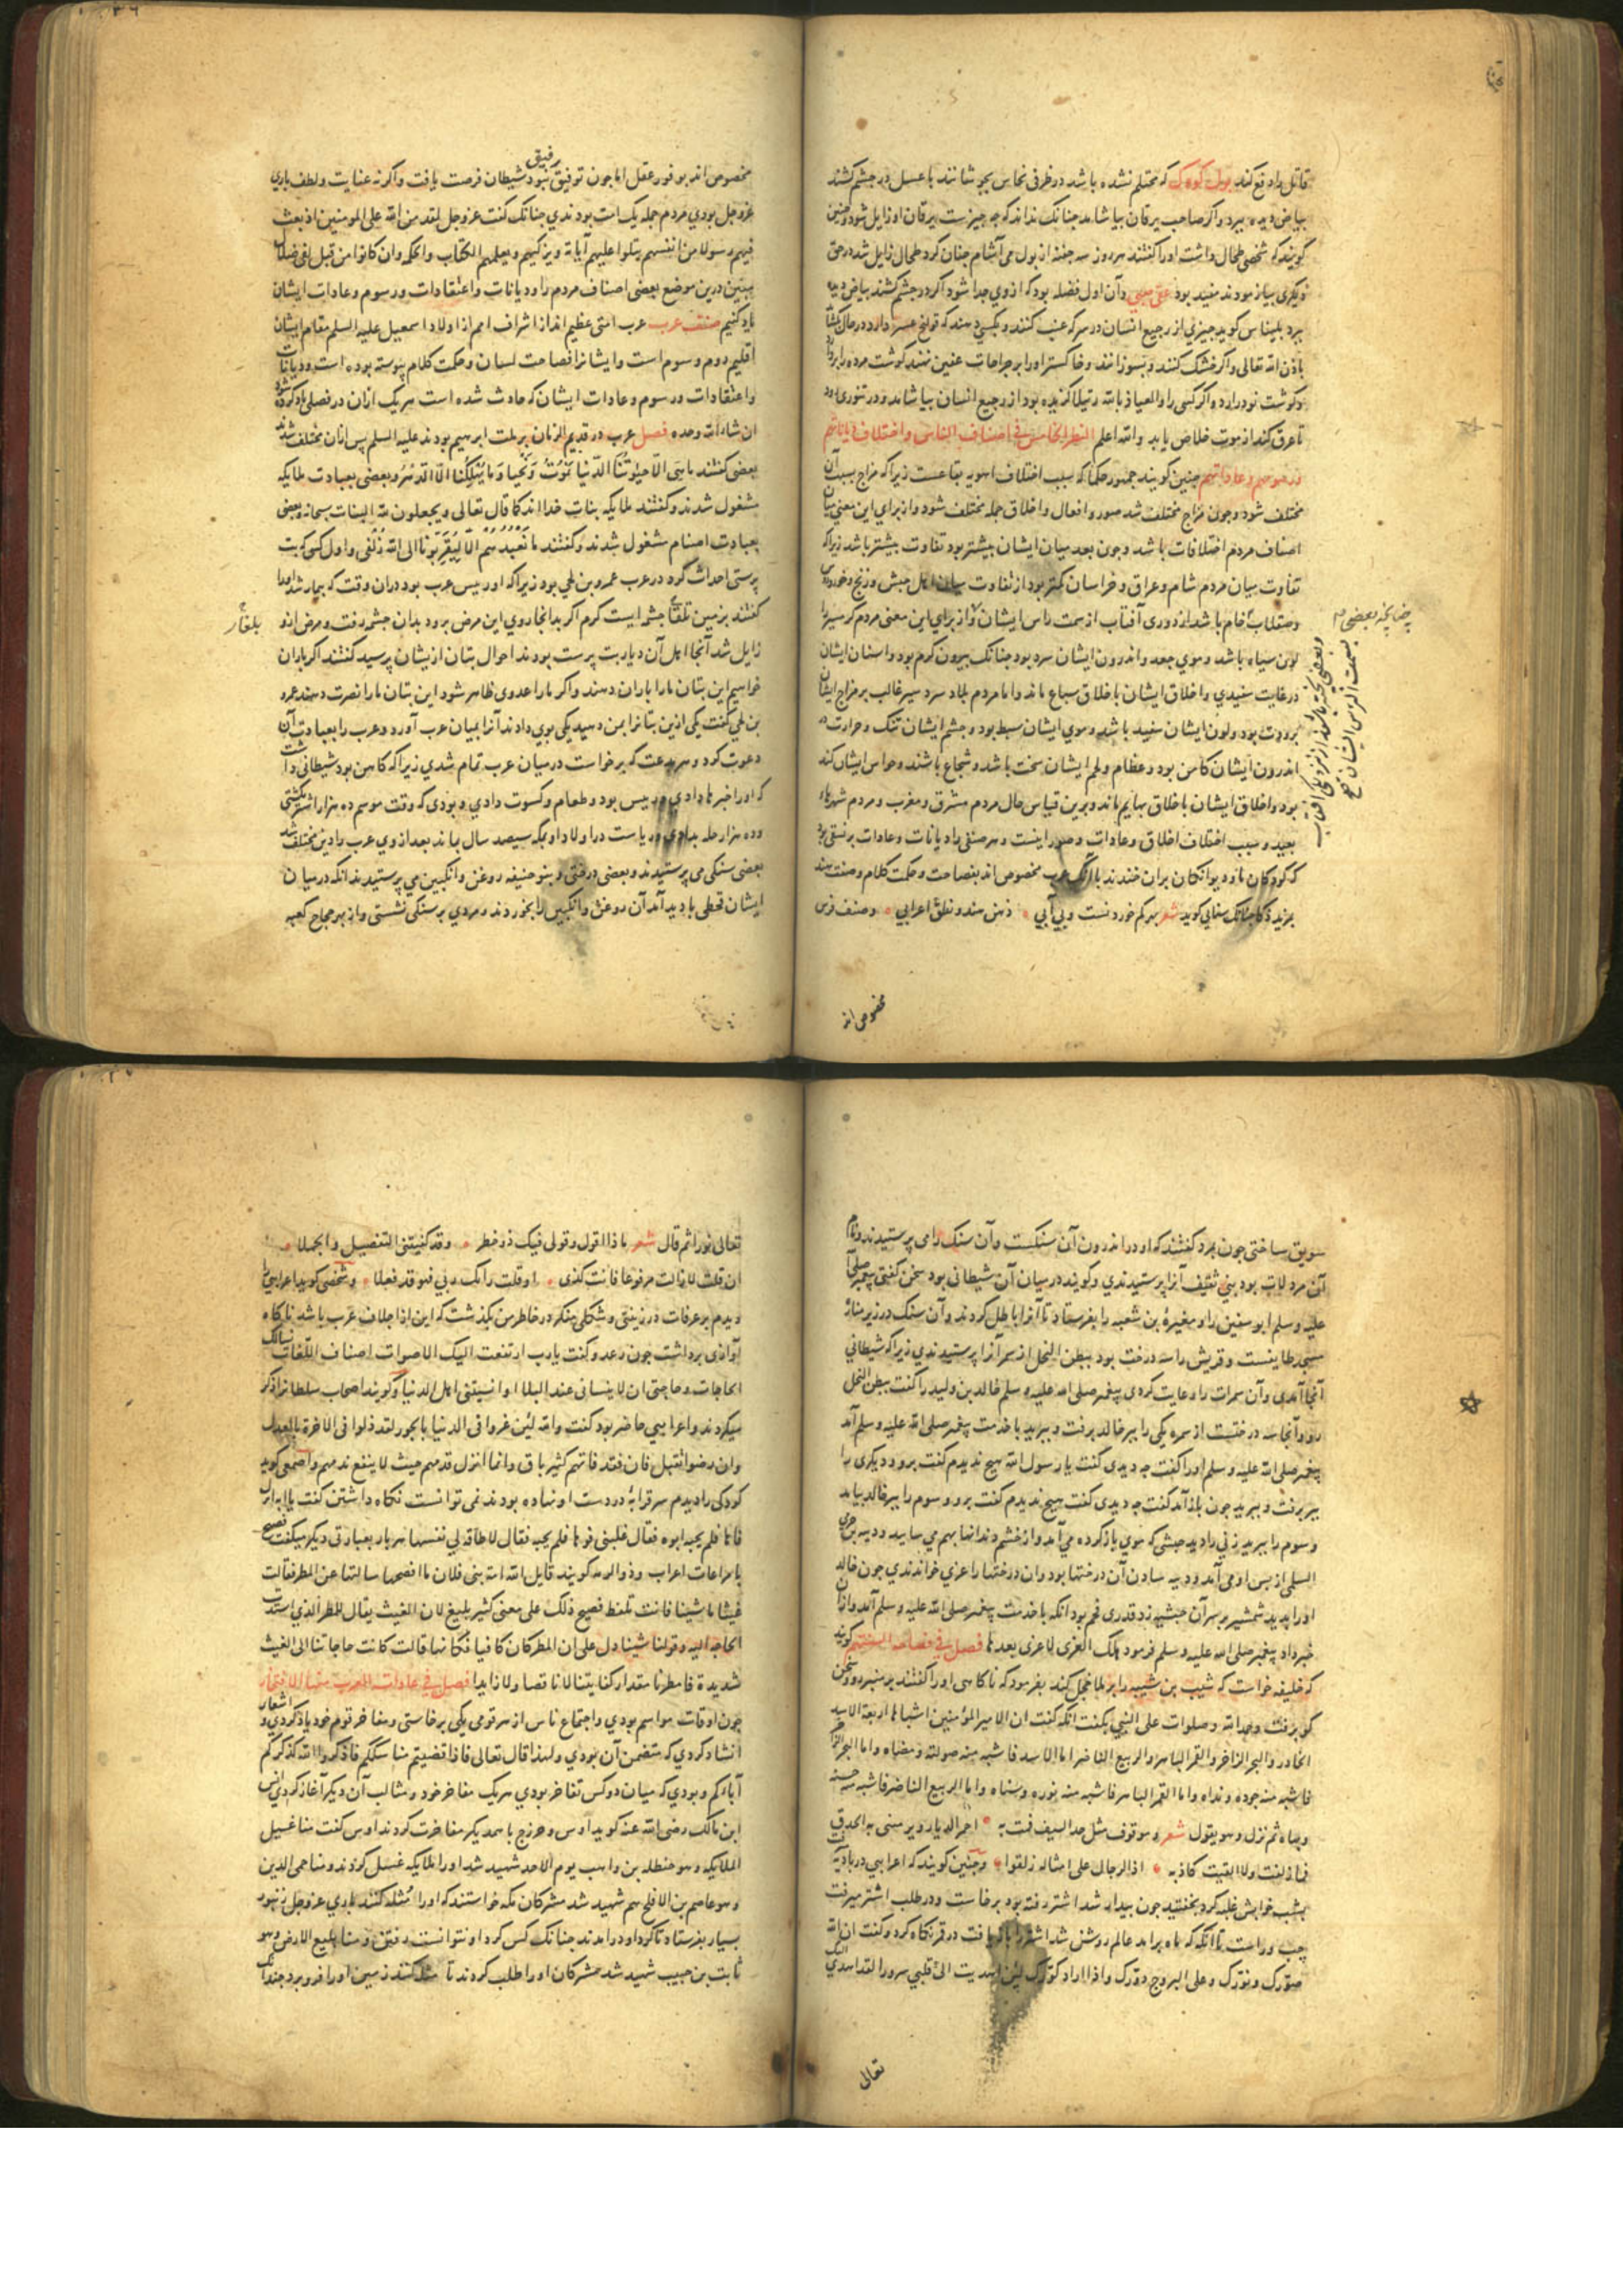 قاتل را دفع کند بول کودک که محتلم نشده باشد در ظرفی نحاس بجوشانند با عسل در چشم کشند
بیاض دیده ببرد و اکر صاحب یرقان بیاشامد جنانک نداند که جه جیزست یرقان او زایل شود و جنین
کویند که شخصی طحال داشت او را کفتند هر روز سه جفنه از بول می آشام جنان کرد طحال زایل شد در حق
دیکری بیازمودند مفید بود عقی صبی وآن اول فضله بود که ازوی جدا شود اکر در جشم کشند بیاض دیده
ببرد بلیناس کوید جیزی از رجیع انسان در سرکه عنب کنند و بکسی دهند که قولنج عسر دارد در حال
باذن الله تعالی واکر خشک کنند و بسوزانند و خاکستر او را بر جراحات عفین نهند کوشت مرده را ببرد
وکوشت نو درآرد واکر کسی را والعیاذ بالله رتیلا کزیده بود از رجیع انسان بیاشامد و در تنوری رود
تا عرق کند از موت خلاص یابد والله اعلم النظر الخامس فی اصناف الناس واختلاف دیاناتهم
ورسومهم وعاداتهم جنین کویند جمهور حکما که سبب اختلاف اهویه بقاعست زیرا که مزاج بسبب آن
مختلف شود وجون مزاج مختلف شد صور وافعال واخلاق جمله مختلف شود واز برای این معنی میان
اصناف مردم اختلافات باشد وجون بعد میان ایشان بیشتر بود تفاوت بیشتر باشد زیرا که
تفاوت میان مردم شام وعراق وخراسان کمتر بود از تفاوت میان اهل حبش وزنج وخزر و روس
وصقلاب خام باشد از دوری آفتاب از سمت راس ایشان و از برای این معنی مردم کرمسیر را
لون سیاه باشد وموی جعد واندرون ایشان سرد بود جنانک بیرون کرم بود واسنان ایشان
در غایت سفیدی واخلاق ایشان باخلاق سباع ماند واما مردم بلاد سردسیر غالب بر مزاج ایشان
برودت بود ولون ایشان سفید باشد وموی ایشان سبط بود وجشم ایشان تنک وحرارت در
اندرون ایشان کامن بود وعظام ولحم ایشان سخت باشد وشجاع باشند وحواس ایشان کند
بود واخلاق ایشان باخلاق بهایم ماند وبرین قیاس حال مردم مشرق ومغرب ومردم شهرهاء
بعید وسبب اختلاف اخلاق وعادات وصور اینست وهر صنفی را دیانات وعادات برنسقی بود
که کودکان ما ودیوانکان بران خندند با آنک عرب مخصوص اند بفصاحت وحکمت کلام وصنف هند
بمزید ذکا جنانک سنایی کوید شعر بهر کم خوردنست وبی آبی ذهن هند و نطق اعرابی وصنف فرس
چنانچه بعضی م
وبعضی پخته باشند از نزدیکی آفتاب
بسمت الرؤس ایشان صح
مخصوص اند
رفیق
مخصوص اند بوفور عقل اما جون توفیق نبود شیطان فرصت یافت واکر نه عنایت ولطف باری
عز وجل بودی مردم جمله یک امت بودندی جنانک کفت عز وجل لقد من الله علی المومنین اذ بعث
فیهم رسولا من انفسهم یتلوا علیهم آیاته ویزکیهم ویعلمهم الکتاب والحکمه وان کانوا من قبل لفی ضلال
مبین درین موضع بعضی اصناف مردم را ودیانات واعتقادات ورسوم وعادات ایشان
یاد کنیم صنف عرب عرب امتی عظیم اند از اشراف امم از اولاد اسمعیل علیه السلم مقام ایشان
اقلیم دوم وسوم است وایشانرا فصاحت لسان وحکمت کلام پیوسته بوده است ودیانات
واعتقادات ورسوم وعادات ایشان که حادث شده است هر یک ازان در فصلی یاد کرده شود
ان شاء الله وحده فصل عرب در قدیم الزمان بر ملت ابرهیم بودند علیه السلم پس ازان مختلف شدند
بعضی کفتند ما هی الا حیوتنا الدنیا نموت ونحیا وما یهلکنا الا الدهر وبعضی بعبادت ملایکه
مشغول شدند وکفتند ملایکه بنات خدا اند کما قال تعالی ویجعلون لله البنات سبحانه وبعضی
بعبادت اصنام مشغول شدند وکفتند ما نعبدهم الا لیقربونا الی الله زلفی واول کسی که بت
پرستی احداث کرد در عرب عمرو بن لحی بود زیرا که او رییس عرب بود دران وقت که بیمار شد او را
کفتند بزمین بلقا جشمه ایست کرم اکر بدانجا روی این مرض برود بدان جشمه رفت ومرض ازو
زایل شد آنجا اهل آن دیار بت پرست بودند احوال بتان ازیشان پرسید کفتند اکر باران
خواهیم این بتان ما را باران دهند واکر ما را عدوی ظاهر شود این بتان ما را نصرت دهند عمرو
بن لحی کفت یکی ازین بتانرا بمن دهید یکی بوی دادند آنرا بمیان عرب آورد وعرب را بعبادت آن
دعوت کرد وهر بدعت که برخواست در میان عرب تمام شدی زیرا که کاهن بود شیطانی داشت
که او را خبرها دادی ورییس بود وطعام وکسوت دادی وبودی که وقت موسم ده هزار اشتر بکشتی
وده هزار حله بدادی وریاست در اولاد او بمکه سیصد سال بماند بعد ازوی عرب را دین مختلف شد
بعضی سنکی می پرستیدند وبعضی درختی وبنو حنیفه روغن وانکبین می پرستیدند آنکه در میان
ایشان قحطی بادید آمد آن روغن وانکبین را بخوردند ومردی بر سنکی نشستی واز بهر حجاج کعبه
بلغار
سویق ساختی جون بمرد کفتند که او در اندرون آن سنکست وآن سنک را می پرستیدند ونام
آن مرد لات بود بنی ثقیف آنرا پرستیدندی وکویند در میان آن شیطانی بود سخن کفتی پیغمبر صلی الله
علیه وسلم ابو سفین را ومغیرة بن شعبه را بفرستاد تا آنرا باطل کردند وآن سنک در زیر منارۀ
مسجد طایفست وقریش را سه درخت بود ببطن النخل از سمر آنرا پرستیدندی زیرا که شیطانی
آنجا آمدی وآن سمرات را وعایت کردی پیغمبر صلی الله علیه وسلم خالد بن ولید را کفت ببطن النخل
رو وآنجا سه درختست از سمره یکی را ببر خالد برفت وببرید باخدمت پیغمبر صلی الله علیه وسلم آمد
پیغمبر صلی الله علیه وسلم او را کفت جه دیدی کفت یا رسول الله هیج ندیدم کفت برو ودیکری را
ببر برفت وببرید جون باز آمد کفت جه دیدی کفت هیج ندیدم کفت برو وسوم را ببر خالد بیامد
وسوم را ببرید زنی را دید حبشی که موی باز کرده می آمد واز خشم دندانها بهم می سایید ودبیه بن حرمی
السلمی از پس او می آمد ودبیه سادن آن درختها بود وآن درختها را عزی خواندندی جون خالد
او را بدید شمشیر بر سر آن حبشیه زد قدری فحم بود آنکه باخدمت پیغمبر صلی الله علیه وسلم آمد وازان
خبر داد پیغمبر صلی الله علیه وسلم فرمود تلک العزی لا عزی بعدها فصل فی فصاحة السنتهم کویند
که خلیفه خواست که شبیب بن شیبه را بر ملا خجل کند بفرمود که ناکاهی او را کفتند بر منبر رو وسخن
کو برفت وحمد الله وصلوات علی النبی بکفت آنکه کفت ان لامیر المؤمنین اشباها اربعة الاسد
الخادر والبحر الزاخر والقمر الباهر والربیع الناضر اما الاسد فاشبه منه صولته ومضاه واما البحر الزاخر
فاشبه منه جوده ونداه واما القمر الباهر فاشبه منه نوره وسناه واما الربیع الناضر فاشبه منه حسنه
وبهاه ثم نزل وهو یقول شعر وموقف مثل حد السیف قمت به احمی الدیار ویرمینی به الحدق
فما زلقت ولا القیت کاذبه اذا الرجال علی امثاله زلقوا وجنین کویند که اعرابی در بادیه
بشب خوابش غلبه کرد بخفتید جون بیدار شد اشتر رفته بود برخاست ودر طلب اشتر میرفت
جب وراست تا آنکه که ماه برآمد عالم روشن شد اشتر را باز یافت در قمر نکاه کرد وکفت ان الله
صورک ونورک وعلی البروج دورک واذا اراد کورک لئن اهدیت الی قلبی سرورا لقد اهدی الیک
تعالی
تعالی نورا ثم قال شعر ماذا اقول وقولی فیک ذو خطر وقد کفیتنی التفصیل والجملا
ان قلت لا زالت مرفوعا فانت کذی او قلت زانک ربی فهو قد فعلا وشخصی کوید اعرابیی
دیدم بر عرفات در زینتی وشکلی منکر در خاطر من بکذشت که این از اجلاف عرب باشد ناکاه
آوازی برداشت جون رعد وکفت یا رب ارتفعت الیک الاصوات اصناف اللغات نسالک
الحاجات وحاجتی ان لا ینسانی عند البلاء اذا نسیتنی اهل الدنیا وکویند اصحاب سلطانرا ذکر
میکردند واعرابیی حاضر بود کفت والله لئن عزوا فی الدنیا بالجور لقد ذلوا فی الاخرة بالعدل
وان رضوا بقلیل فان فقد فاتهم کثیر باق وانما تزل قدمهم حیث لا ینفع ندمهم واصمعی کوید
کودکی را دیدم سر قرابۀ در دست او نهاده بودند نمی توانست نکاه داشتن کفت یا ابه ادرک
فاها فلم یجبه ابوه فقال غلبنی فوها فلم یجبه فقال لا طاقة لی بفیها هر بار بعبارتی دیکر میکفت فصیح
با مراعات اعراب وذو الرمه کویند قاتل الله امة بنی فلان ما افصحها سالتها عن المطر فقالت
غثنا ما شینا فانت تلفظ فصیح ذلک علی معنی کثیر بلیغ لان الغیث یقال للمطر الذی اشتدت
الحاجة الیه وقولنا شینا دل علی ان المطر کان کافیا فکانها قالت کانت حاجاتنا الی الغیث
شدیدة فامطرنا مقدار کفایتنا لا ناقصا ولا زایدا فصل فی عادات العرب منها الافتخار
جون اوقات مواسم بودی واجتماع ناس از هر قومی یکی برخاستی ومفاخر قوم خود یاد کردی واشعار
انشاد کردی که متضمن آن بودی ولهذا قال تعالی فاذا قضیتم مناسککم فاذکروا الله کذکرکم
آباءکم وبودی که میان دو کس تفاخر بودی هر یک مفاخر خود ومثالب آن دیکر آغاز کردی انس
ابن مالک رضی الله عنه کوید اوس وخزرج با همدیکر مفاخرت کردند اوس کفت منا غسیل
الملایکه وهو حنظله بن راهب یوم الاحد شهید شد او را ملایکه غسل کردند ومنا حمی الدبر
وهو عاصم بن الافلح هم شهید شد مشرکان مکه خواستند که او را مثله کنند باری عز وجل زنبور
بسیار بفرستاد تا کرد او درآمدند جنانک کس کرد او نتوانست رفتن ومنا بلیع الارض وهو
ثابت بن حبیب شهید شد مشرکان او را طلب کردند تا مثله کنند زمین او را فرو برد جندانک